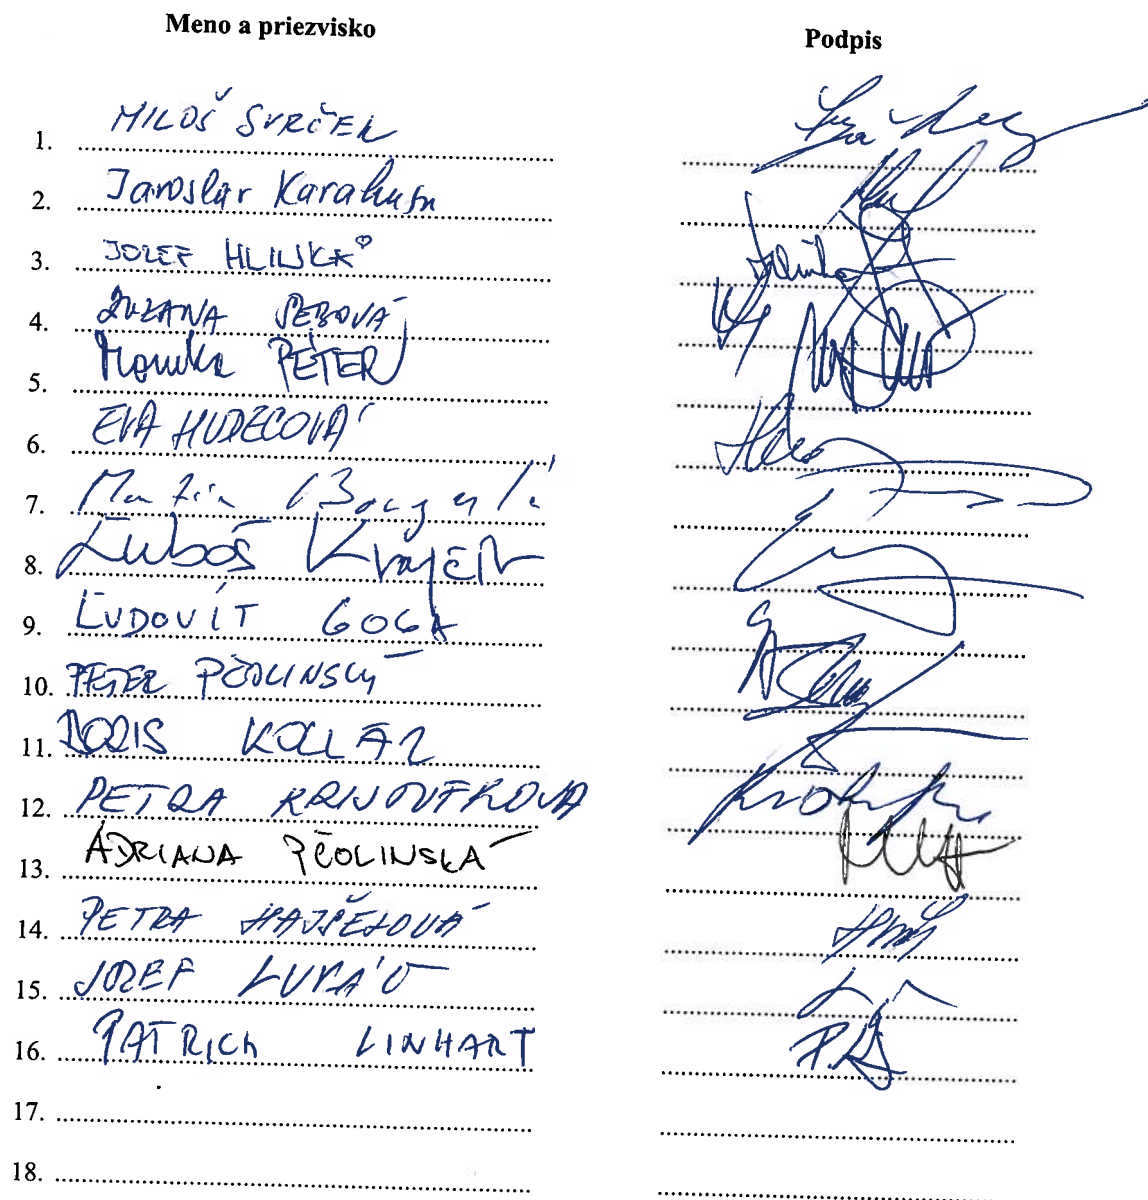 Meno a priezvisko Podpis
1. MILOŠ SVRČEK
2. Jaroslav Karahuta
3. JOZEF HLINKA
4. ZUZANA ŠEBOVÁ
5. Monika PÉTER
6. EVA HUDECOVÁ
7. Martin Borguľa
8. Ľuboš Krajčír
9. ĽUDOVÍT GOGA
10. PETER PČOLINSKÝ
11. BORIS KOLLÁR
12. PETRA KRIŠTÚFKOVÁ
13. ADRIANA PČOLINSKÁ
14. PETRA HAJŠELOVÁ
15. JOZEF LUKÁČ
16. PATRICK LINHART
17.
18.